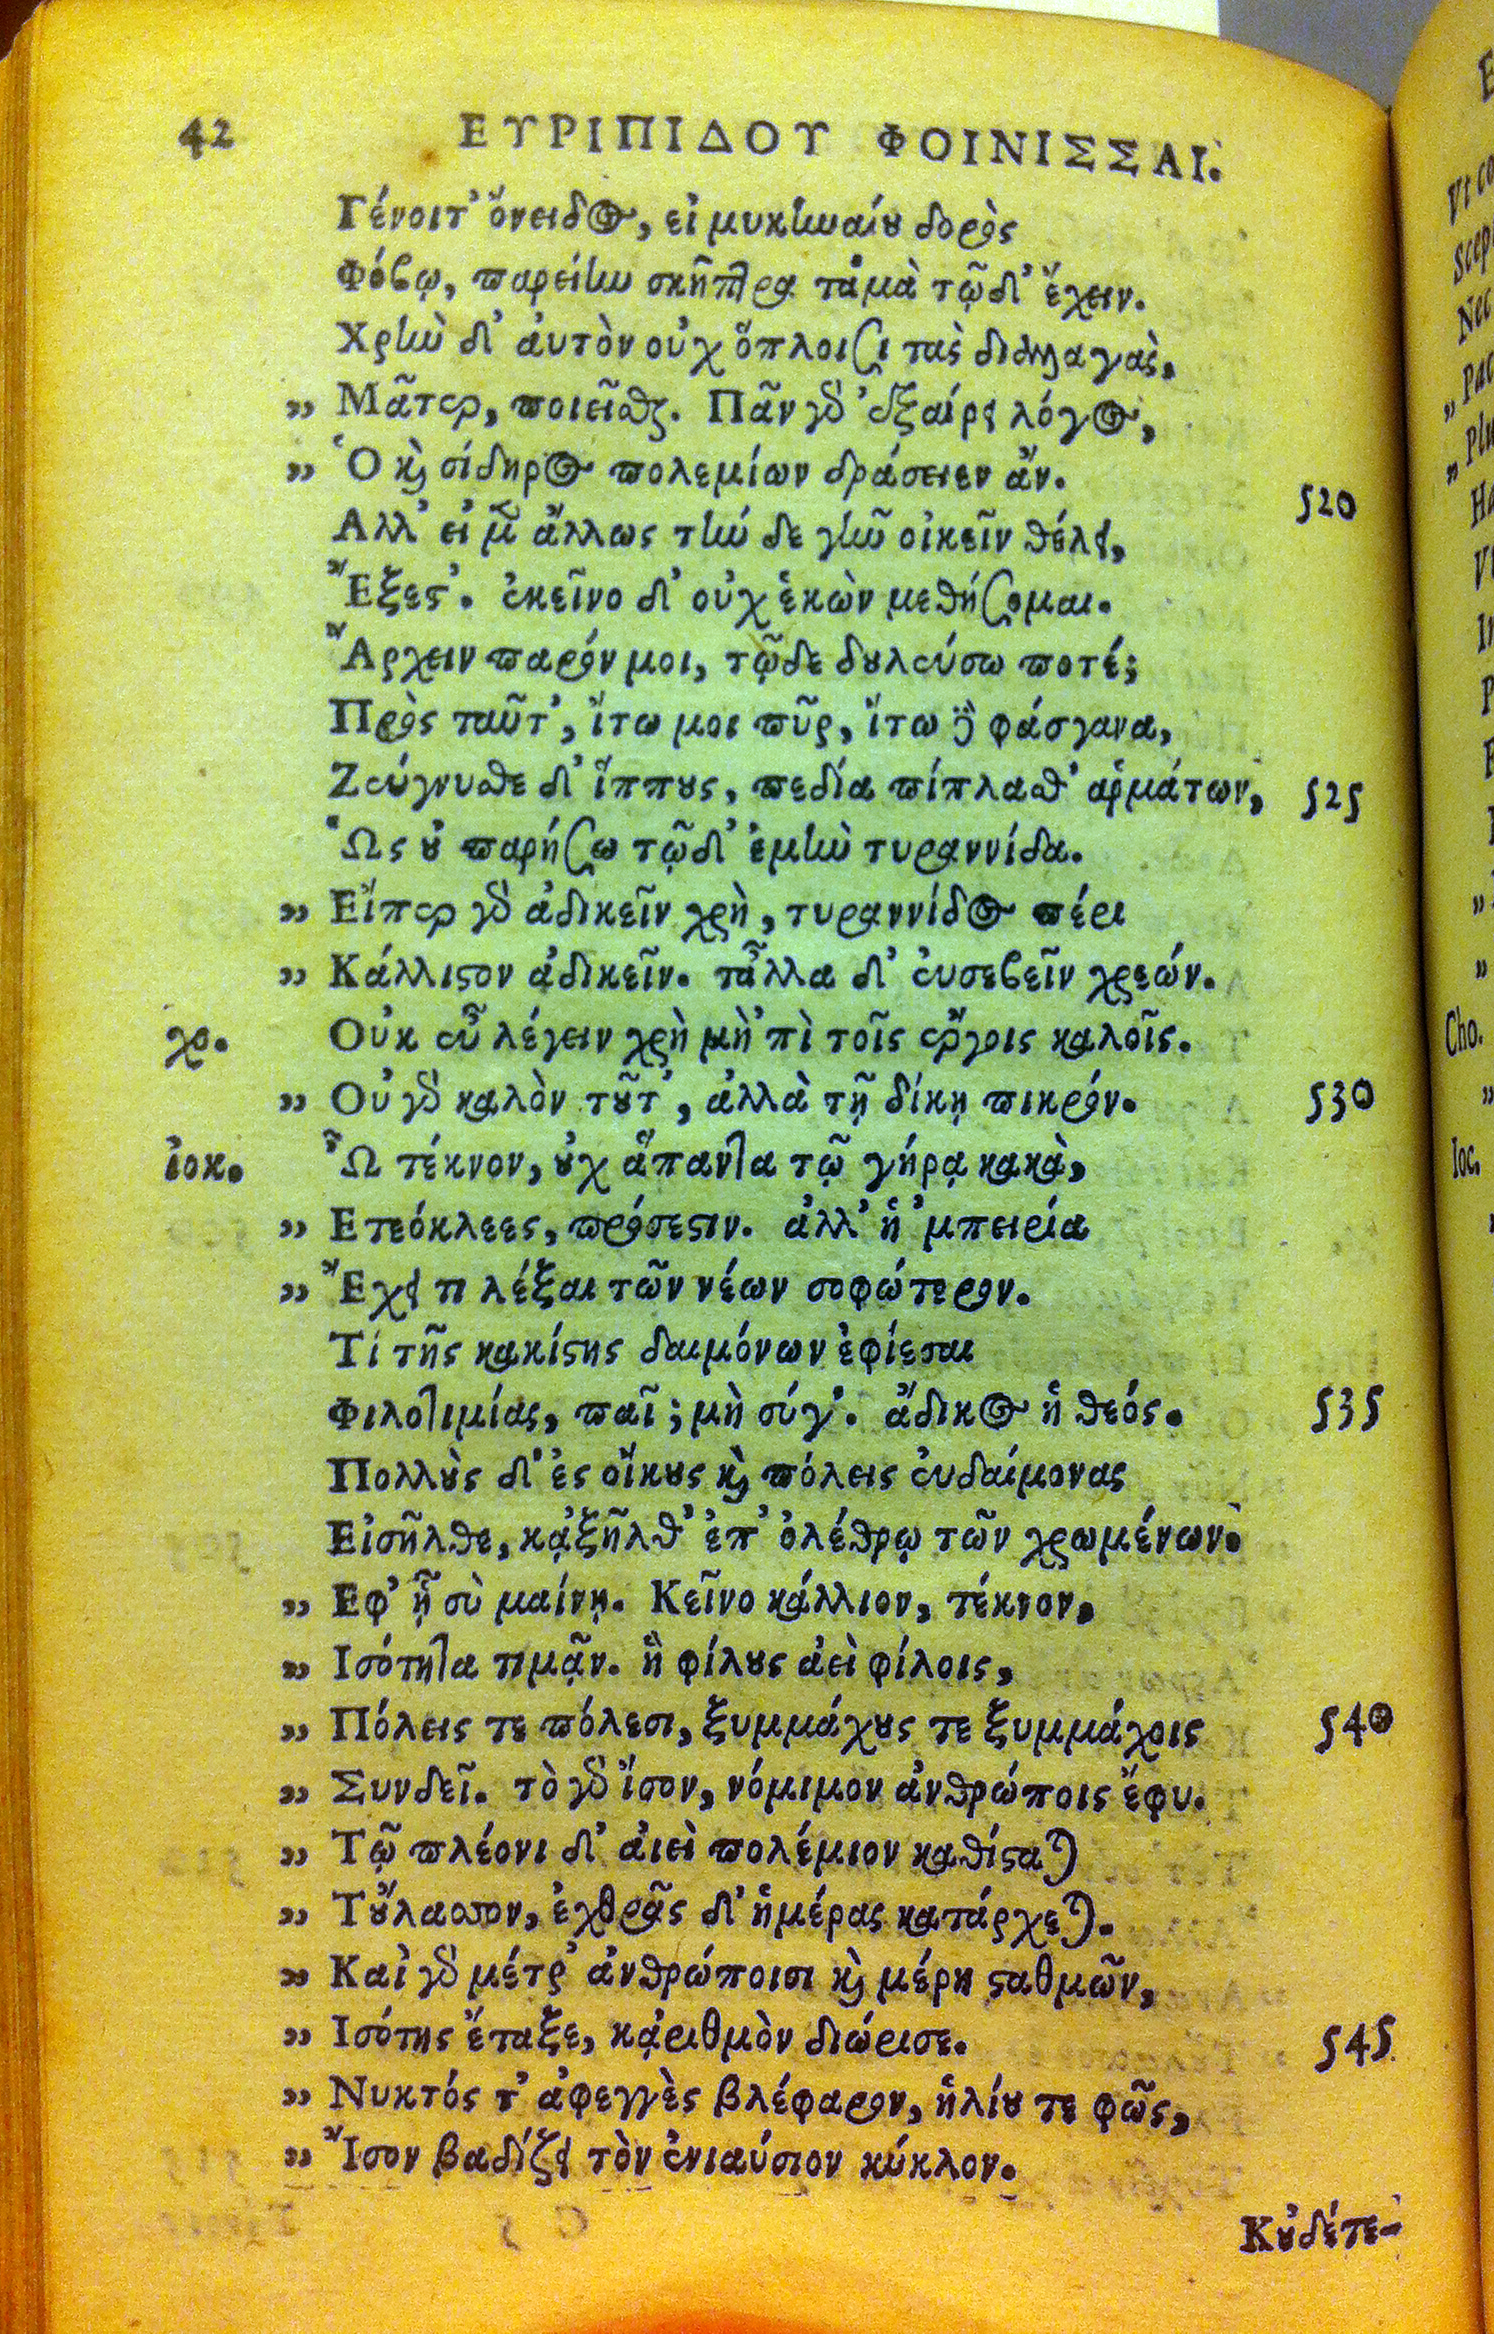 42 ΕΥΡΙΠΙΔΟΥ ΦΟΙΝΙΣΣΑΙ.
Γένοιτ' ὄνειδος, εἰ μυκηναίου δορὸς
Φόβῳ, παρείην σκῆπτρα τἀμὰ τῷδ' ἔχειν.
Χρὴν δ' ἀυτὸν οὐχ ὅπλοισι τὰς διαλλαγὰς,
„ Μᾶτερ, ποιεῖσθαι. Πᾶν γὰρ 'ξαίρει λόγος,
„ Ὁ καὶ σίδηρος πολεμίων δράσειεν ἄν.
Αλλ' εἰ μὲν ἄλλως τήν δε γῆν οἰκεῖν θέλει, 520
Ἔξεστ'. ἐκεῖνο δ' οὐχ ἑκὼν μεθήσομαι.
Ἄρχειν παρόν μοι, τῷδε δουλεύσω ποτέ;
Πρὸς ταῦτ', ἴτω μοι πῦρ, ἴτω δὲ φάσγανα,
Ζεύγνυσθε δ' ἵππους, πεδία πίπλασθ' ἁρμάτων, 525
Ὡς οὐ παρήσω τῷδ' ἐμὴν τυραννίδα.
„ Εἴπερ γὰρ ἀδικεῖν χρὴ, τυραννίδος πέρι
„ Κάλλιστον ἀδικεῖν. τἆλλα δ' ἐυσεβεῖν χρεών.
χο. Οὐκ εὖ λέγειν χρὴ μὴ 'πὶ τοῖς ἔργοις καλοῖς.
„ Οὐ γὰρ καλὸν τοῦτ', ἀλλὰ τῇ δίκῃ πικρόν. 530
ἰοκ. Ὦ τέκνον, οὐχ ἅπαντα τῷ γήρᾳ κακὰ,
„ Ετεόκλεες, πρόσεστιν. ἀλλ' ἡ 'μπειρία
„ Ἔχει τι λέξαι τῶν νέων σοφώτερον.
Τί τῆς κακίστης δαιμόνων ἐφίεσαι
Φιλοτιμίας, παῖ; μὴ σύ γ'. ἄδικος ἡ θεός. 535
Πολλοὺς δ' ἐς οἴκους καὶ πόλεις ἐυδαίμονας
Εἰσῆλθε, κἀξῆλθ' ἐπ' ὀλέθρῳ τῶν χρωμένων.
„ Εφ' ᾗ σὺ μαίνῃ. Κεῖνο κάλλιον, τέκνον,
„ Ισότητα τιμᾷν. ἣ φίλους ἀεὶ φίλοις,
„ Πόλεις τε πόλεσι, ξυμμάχους τε ξυμμάχοις 540
„ Συνδεῖ. τὸ γὰρ ἴσον, νόμιμον ἀνθρώποις ἔφυ.
„ Τῷ πλέονι δ' ἀιεὶ πολέμιον καθίσταται
„ Τοὔλασσον, ἐχθρᾶς δ' ἡμέρας κατάρχεται.
„ Καὶ γὰρ μέτρ' ἀνθρώποισι καὶ μέρη σταθμῶν,
„ Ισότης ἔταξε, κἀριθμὸν διώρισε. 545
„ Νυκτός τ' ἀφεγγὲς βλέφαρον, ἡλίου τε φῶς,
„ Ἴσον βαδίζει τὸν ἐνιαύσιον κύκλον.
Κοὐδέτε-
Cho.
Ioc.